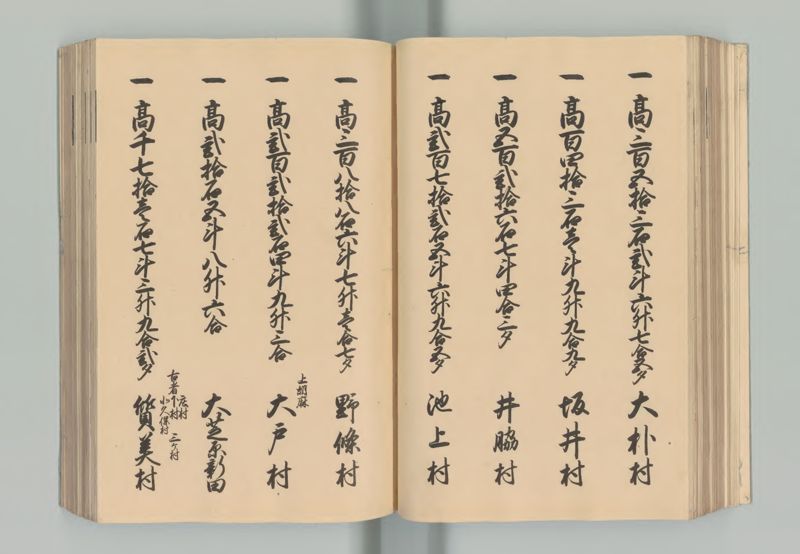 一 髙三百五拾三石弐斗六升七合五夕 大朴村
一 髙百四拾三石壱斗九升九合九夕 坂井村
一 髙五百弐拾六石七斗四合三夕 井脇村
一 髙弐百七拾弐石五斗六升九合五夕 池上村
一 髙三百八拾八石六斗七升壱合七夕 野條村
一 髙弐百弐拾弐石四斗九升三合 上胡麻 大戸村
一 髙弐拾石五斗八升六合 大芝原新田
一 髙千七拾壱石七斗三升九合弐夕 質美村
古者下村 庄村 小久保村 三ケ村